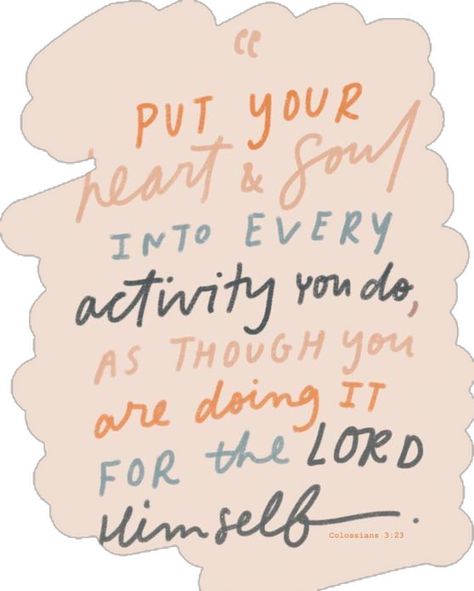 “
PUT YOUR
heart & soul
INTO EVERY
activity you do,
AS THOUGH you
are doing IT
FOR the LORD
Himself.
Colossians 3:23